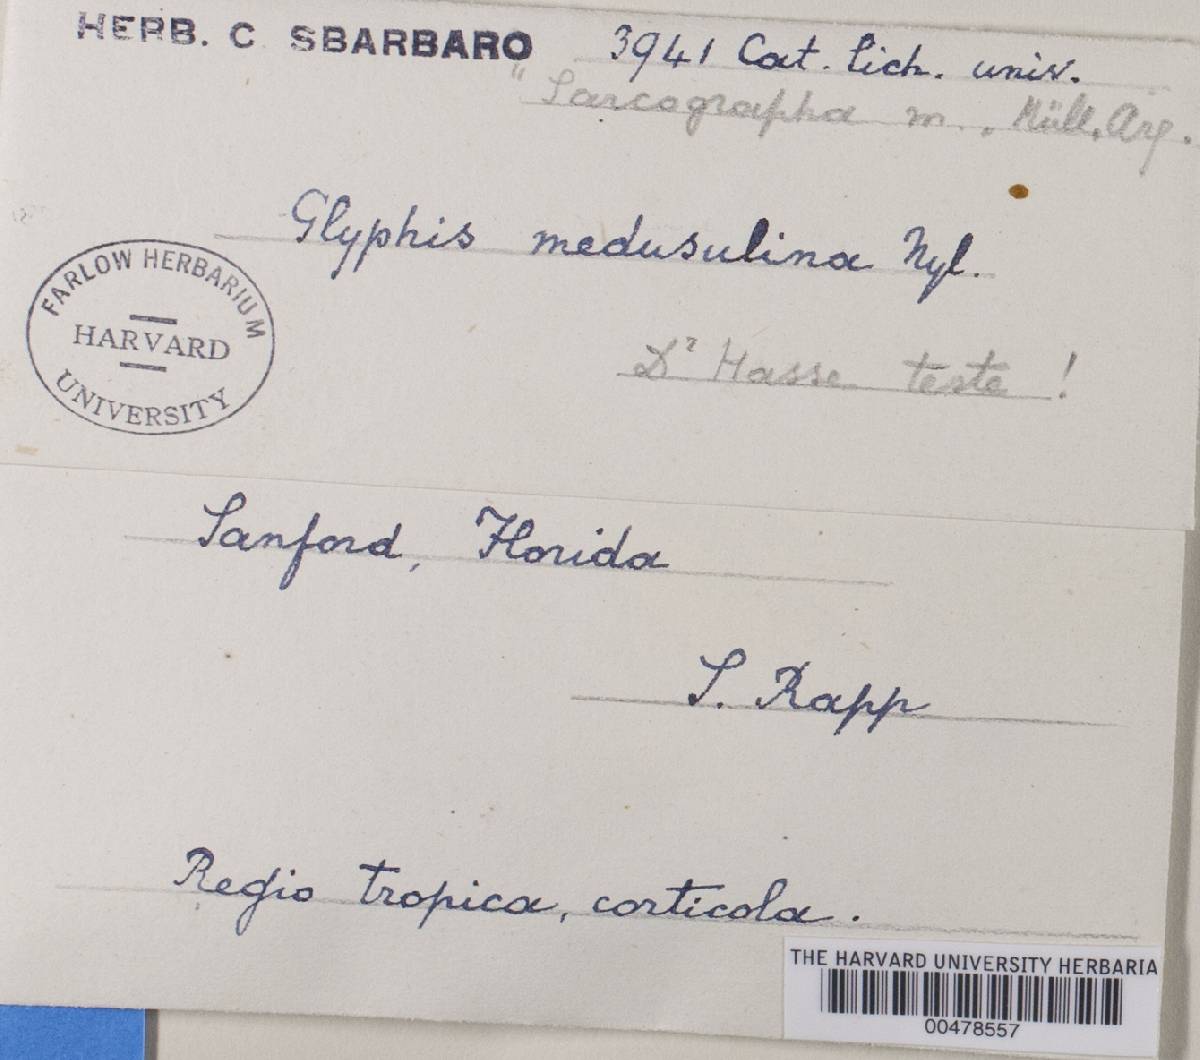 HERB. C SBARBARO 3941 Cat. Lich. univ.
" Sarcographa m., Müll. Arg.
Glyphis medusulina Nyl.
FARLOW HERBARIUM
HARVARD
UNIVERSITY
Dr Hasse teste!
Sanford, Florida
S. Rapp
Regio tropica, corticola.
THE HARVARD UNIVERSITY HERBARIA
00478557